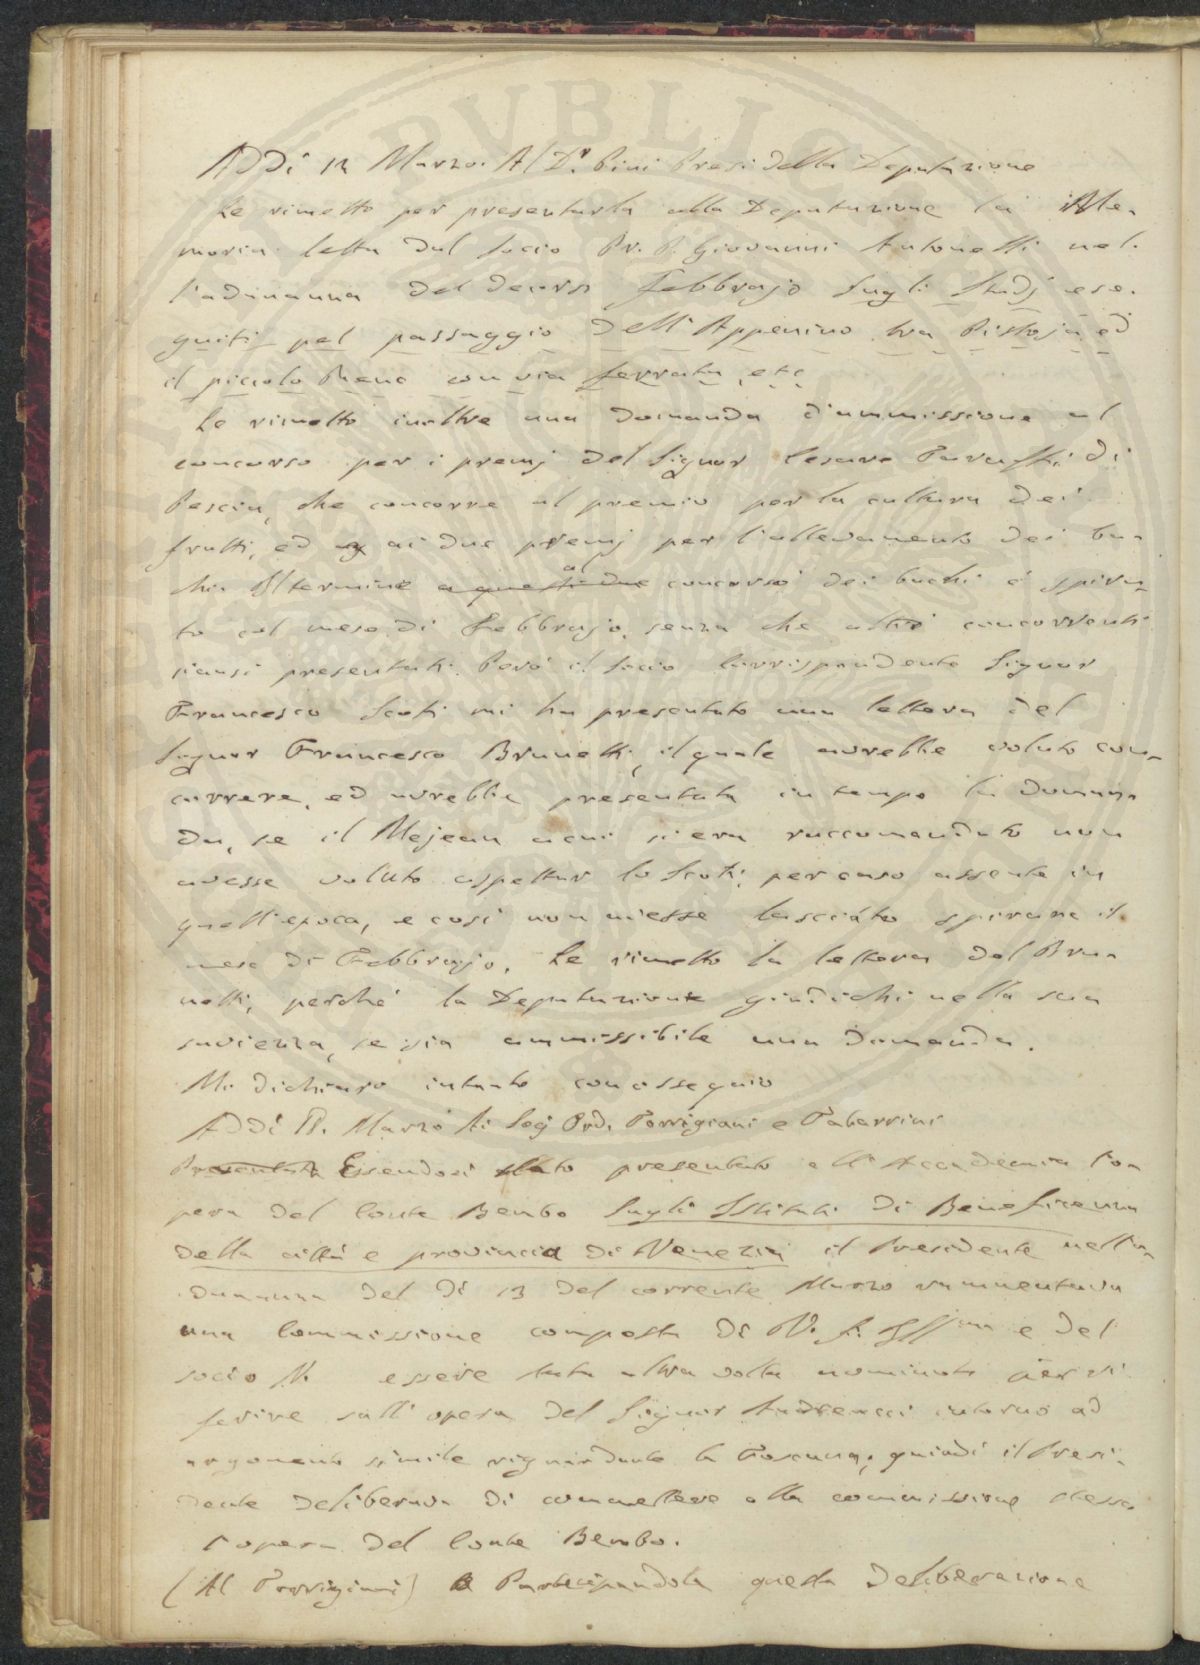 Addì 12 Marzo. Al D.r Pini Presi. della Deputazione
Le rimetto per presentarla alla Deputazione la Me-
moria letta dal socio Pr. P. Giovanni Antonelli nel-
l'adunanza del decorso Febbrajo sugli Studj ese-
guiti pel passaggio dell'Appenino tra Pistoja ed
il piccolo Reno con via ferrata, etc
Le rimetto inoltre una domanda d'ammissione al
concorso per i premj del Signor Cesare di
Pescia, che concorre al premio per la cultura dei
frutti, ed ai due premj per l'allevamento dei ba-
chi. Il termine a questi due al concorso dei bachi è spira-
to col mese di Febbrajo, senza che altri concorrenti
siansi presentati. Però il socio Corrispondente Signor
Francesco Scoti mi ha presentato una lettera del
Signor Francesco Brunetti, il quale avrebbe voluto con-
correre, ed avrebbe presentata in tempo la doman-
da, se il Mejean a cui si era raccomandato non
avesse voluto aspettar lo Scoti, per caso assente in
quell'epoca, e così non avesse lasciato spirare il
mese di Febbrajo. Le rimetto la lettera del Bru-
netti, perché la Deputazione giudichi nella sua
saviezza, se sia ammissibile una domanda.
Mi dichiaro intanto con ossequio
Addì 18. Marzo Ai Soj Ord. Torrigiani e Tabarrini
Presentata Essendosi stato presentato all'Accademia l'o-
pera del Conte Bembo Sugli Istituti di Beneficenza
della città e provincia di Venezia il Presidente nell'a-
dunanza del dì 13 del corrente Marzo rammentava
una Commissione composta di V. S. Ill.ma e del
socio N. essere stata altra volta nominata per ri-
ferire sull'opera del Signor Andreucci intorno ad
argomento simile riguardante la Toscana; quindi il Presi-
dente deliberava di commettere alla commissione stessa
l'opera del Conte Bembo.
(Al Torrigiani) Partecipandole questa deliberazione
PVBLIC